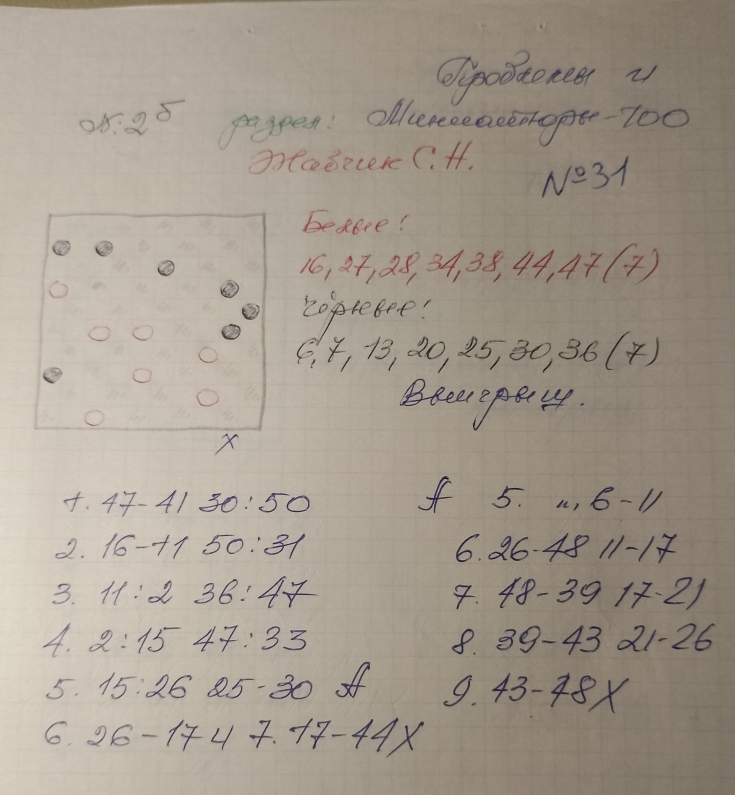 Проблемы и
№:2б раздел: Миниатюры-100
Жавчик С.Н.
№31
Белые:
16,27,28,34,38,44,47(7)
Чёрные:
6,7,13,20,25,30,36(7)
Выигрыш.
X
1. 47-41 30:50
2. 16-11 50:31
3. 11:2 36:47
4. 2:15 47:33
5. 15:26 25-30 А
6. 26-17 и 7. 17-44X
А 5. „, 6-11
6. 26-48 11-17
7. 48-39 17-21
8. 39-43 21-26
9. 43-48X